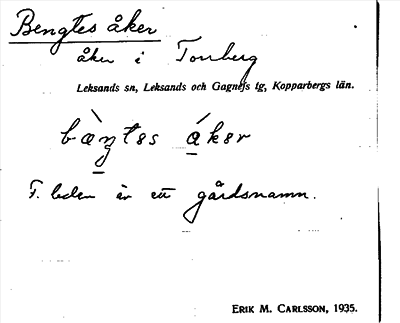 Bengtes åker
åker i Tonberg
Leksands sn, Leksands och Gagnefs tg, Kopparbergs län.
bæ̀ŋtəs ákər
F. leden är ett gårdsnamn.
ERIK M. CARLSSON, 1935.